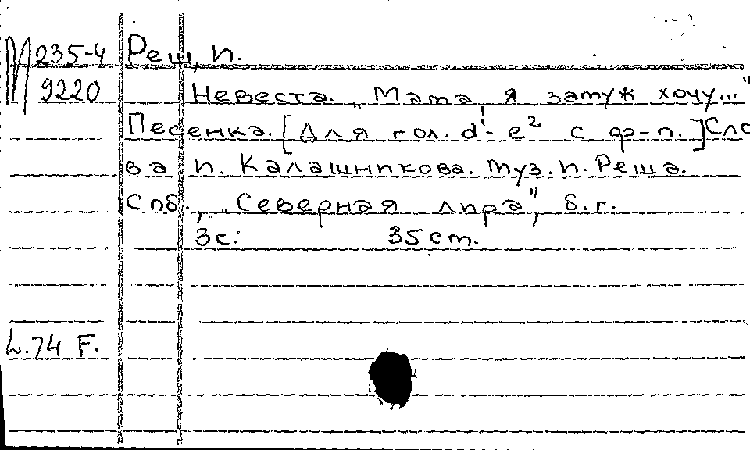 М 235-4 Реш, П.
9220 Невеста. „Мама, я замуж хочу..."
Песенка. [Для гол. d¹-e² с ф-п.] Сло
ва П. Калашникова. Муз. П. Реша.
Спб., „Северная лира", б.г.
3с. 35 cm.
L.74 F.